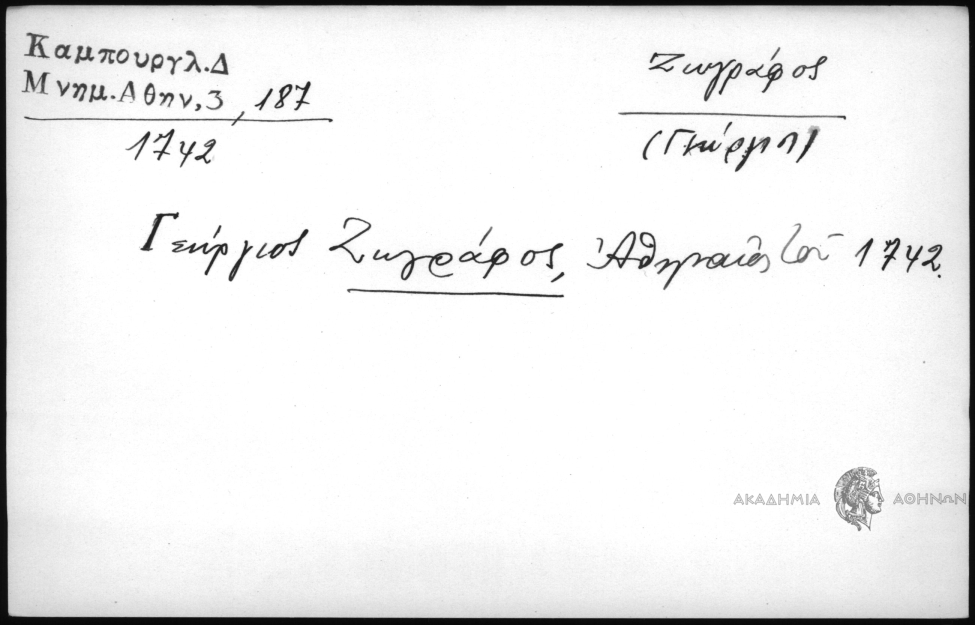 Καμπουργλ.Δ
Μνημ.Αθην,3, 187
1742
Ζωγράφος
(Γεώργιος)
Γεώργιος Ζωγράφος, Ἀθηναῖος τοῦ 1742.
ΑΚΑΔΗΜΙΑ ΑΘΗΝΩΝ